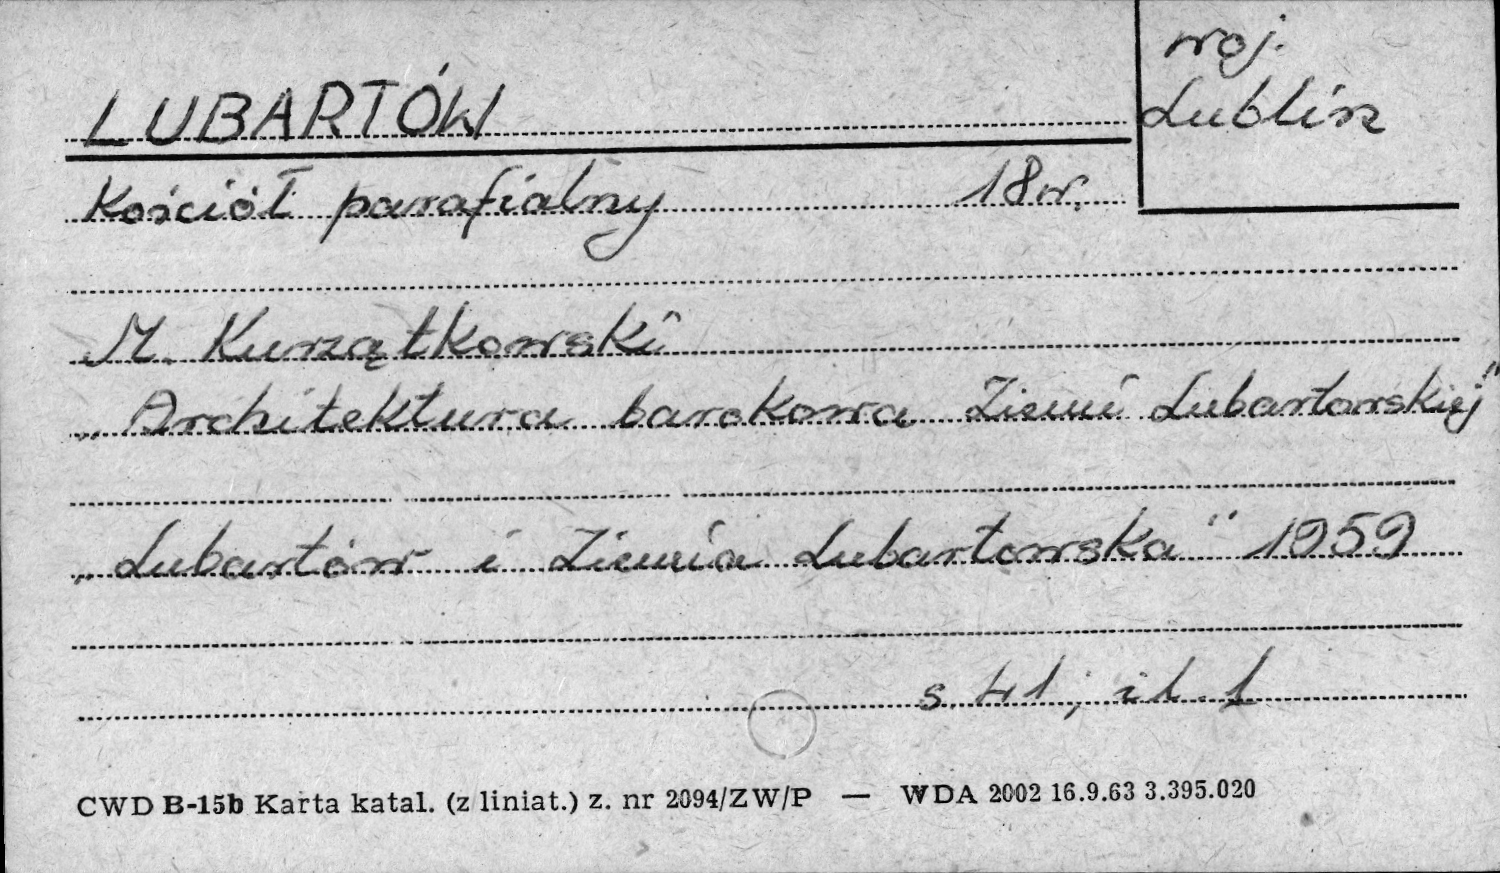 woj.
Lublin
LUBARTÓW
Kościół parafialny 18 w.
M. Kurzątkowski
„Architektura barokowa Ziemi Lubartowskiej"
„Lubartów i Ziemia Lubartowska" 1959
s. 41; il. 1
CWD B-15b Karta katal. (z liniat.) z. nr 2094/ZW/P — WDA 2002 16.9.63 3.395.020